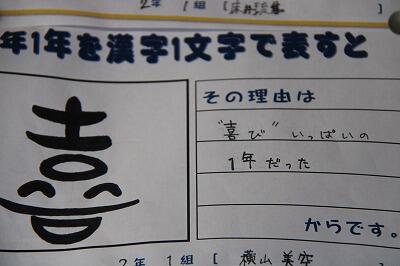 2年 1組 [
年1年を漢字1文字で表すと
喜
その理由は
"喜び"いっぱいの
1年だった
からです。
2年 1組 [ 横山 美空